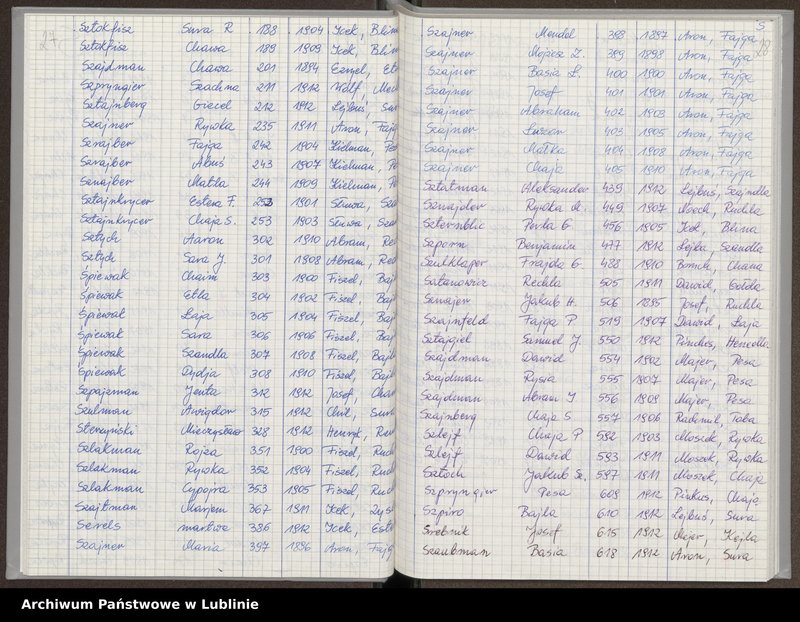 27
Sztokfisz Sura R. 188 1904 Icek, Blima
Sztokfisz Chawa 189 1909 Icek, Blima
Szajdman Chawa 201 1894
Szpryngier 211 1912 Wolf,
Sztajnberg 212 1912 Lejbuś,
Szajner Rywka 235 1911 Aron, Fajga
Szrajber Fajga 242 1904 Kielman,
Szrajber Abuś 243 1907 Kielman,
Szrajber Matla 244 1909 Kielman,
Sztajnkrycer Estera F. 253 1901
Sztajnkrycer Chaja S. 253 1903
Sztych Aaron 302 1910 Abram,
Sztych Sara J. 301 1908 Abram,
Śpiewak Chaim 303 1900 Fiszel,
Śpiewak Etla 304 1902 Fiszel,
Śpiewak Łaja 305 1904 Fiszel,
Śpiewak Sara 306 1906 Fiszel,
Śpiewak Szandla 307 1908 Fiszel,
Śpiewak Dydja 308 1910 Fiszel,
Szpajzman Jenta 312 1912 Josef,
Szulman Awigdor 315 1912 Chil,
Sterczyński Mieczysław 328 1912 Henryk,
Szlakman Rojza 351 1900 Fiszel,
Szlakman Rywka 352 1904 Fiszel,
Szlakman Cypojra 353 1905 Fiszel,
Szajtman Marjem 367 1911 Icek,
Serels martwe 386 1912 Icek,
Szajner Maria 397 1896 Aron, Fajga
S
28
Szajner Mendel 398 1897 Aron, Fajga
Szajner Mojżesz Z. 399 1898 Aron, Fajga
Szajner Basia Ł. 400 1900 Aron, Fajga
Szajner Josef 401 1901 Aron, Fajga
Szajner Abraham 402 1903 Aron, Fajga
Szajner 403 1905 Aron, Fajga
Szajner Małka 404 1908 Aron, Fajga
Szajner Chaja 405 1910 Aron, Fajga
Sztatman Aleksander 439 1912 Lejbuś, Szajndla
Sznajder Rywka 449 1907 Noech, Ruchla
Szternblic Perla G. 456 1905 Icek, Blima
Szporn Benjamin 477 1912 Lejba, Szandla
Szulklaper Frajda G. 488 1910 Boruch, Chana
Szatanowicz Rechla 505 1911 Dawid, Gołda
Sznajer Jakub H. 506 1895 Josef, Ruchla
Szajnfeld Fajga P. 519 1907 Dawid, Łaja
Sztajgiel Samuel J. 550 1912 Pinchos, Hencella
Szajdman Dawid 554 1902 Majer, Pesa
Szajdman Rysia 555 1907 Majer, Pesa
Szajdman Abram J. 556 1909 Majer, Pesa
Szajnberg Chaja S. 557 1906 Rachmil, Toba
Szlejf Chaja P. 592 1903 Moszek, Rywka
Szlejf Dawid 593 1911 Moszek, Rywka
Sztoch Jakub 597 1911 Moszek, Chaja
Szpryngier Pesa 609 1912 Pinkus, Chaja
Szpiro Bajla 610 1912 Lejbuś, Sura
Srebnik Josef 615 1912 Majer, Kejla
Szaubman Basia 618 1912 Aron, Sura
Archiwum Państwowe w Lublinie